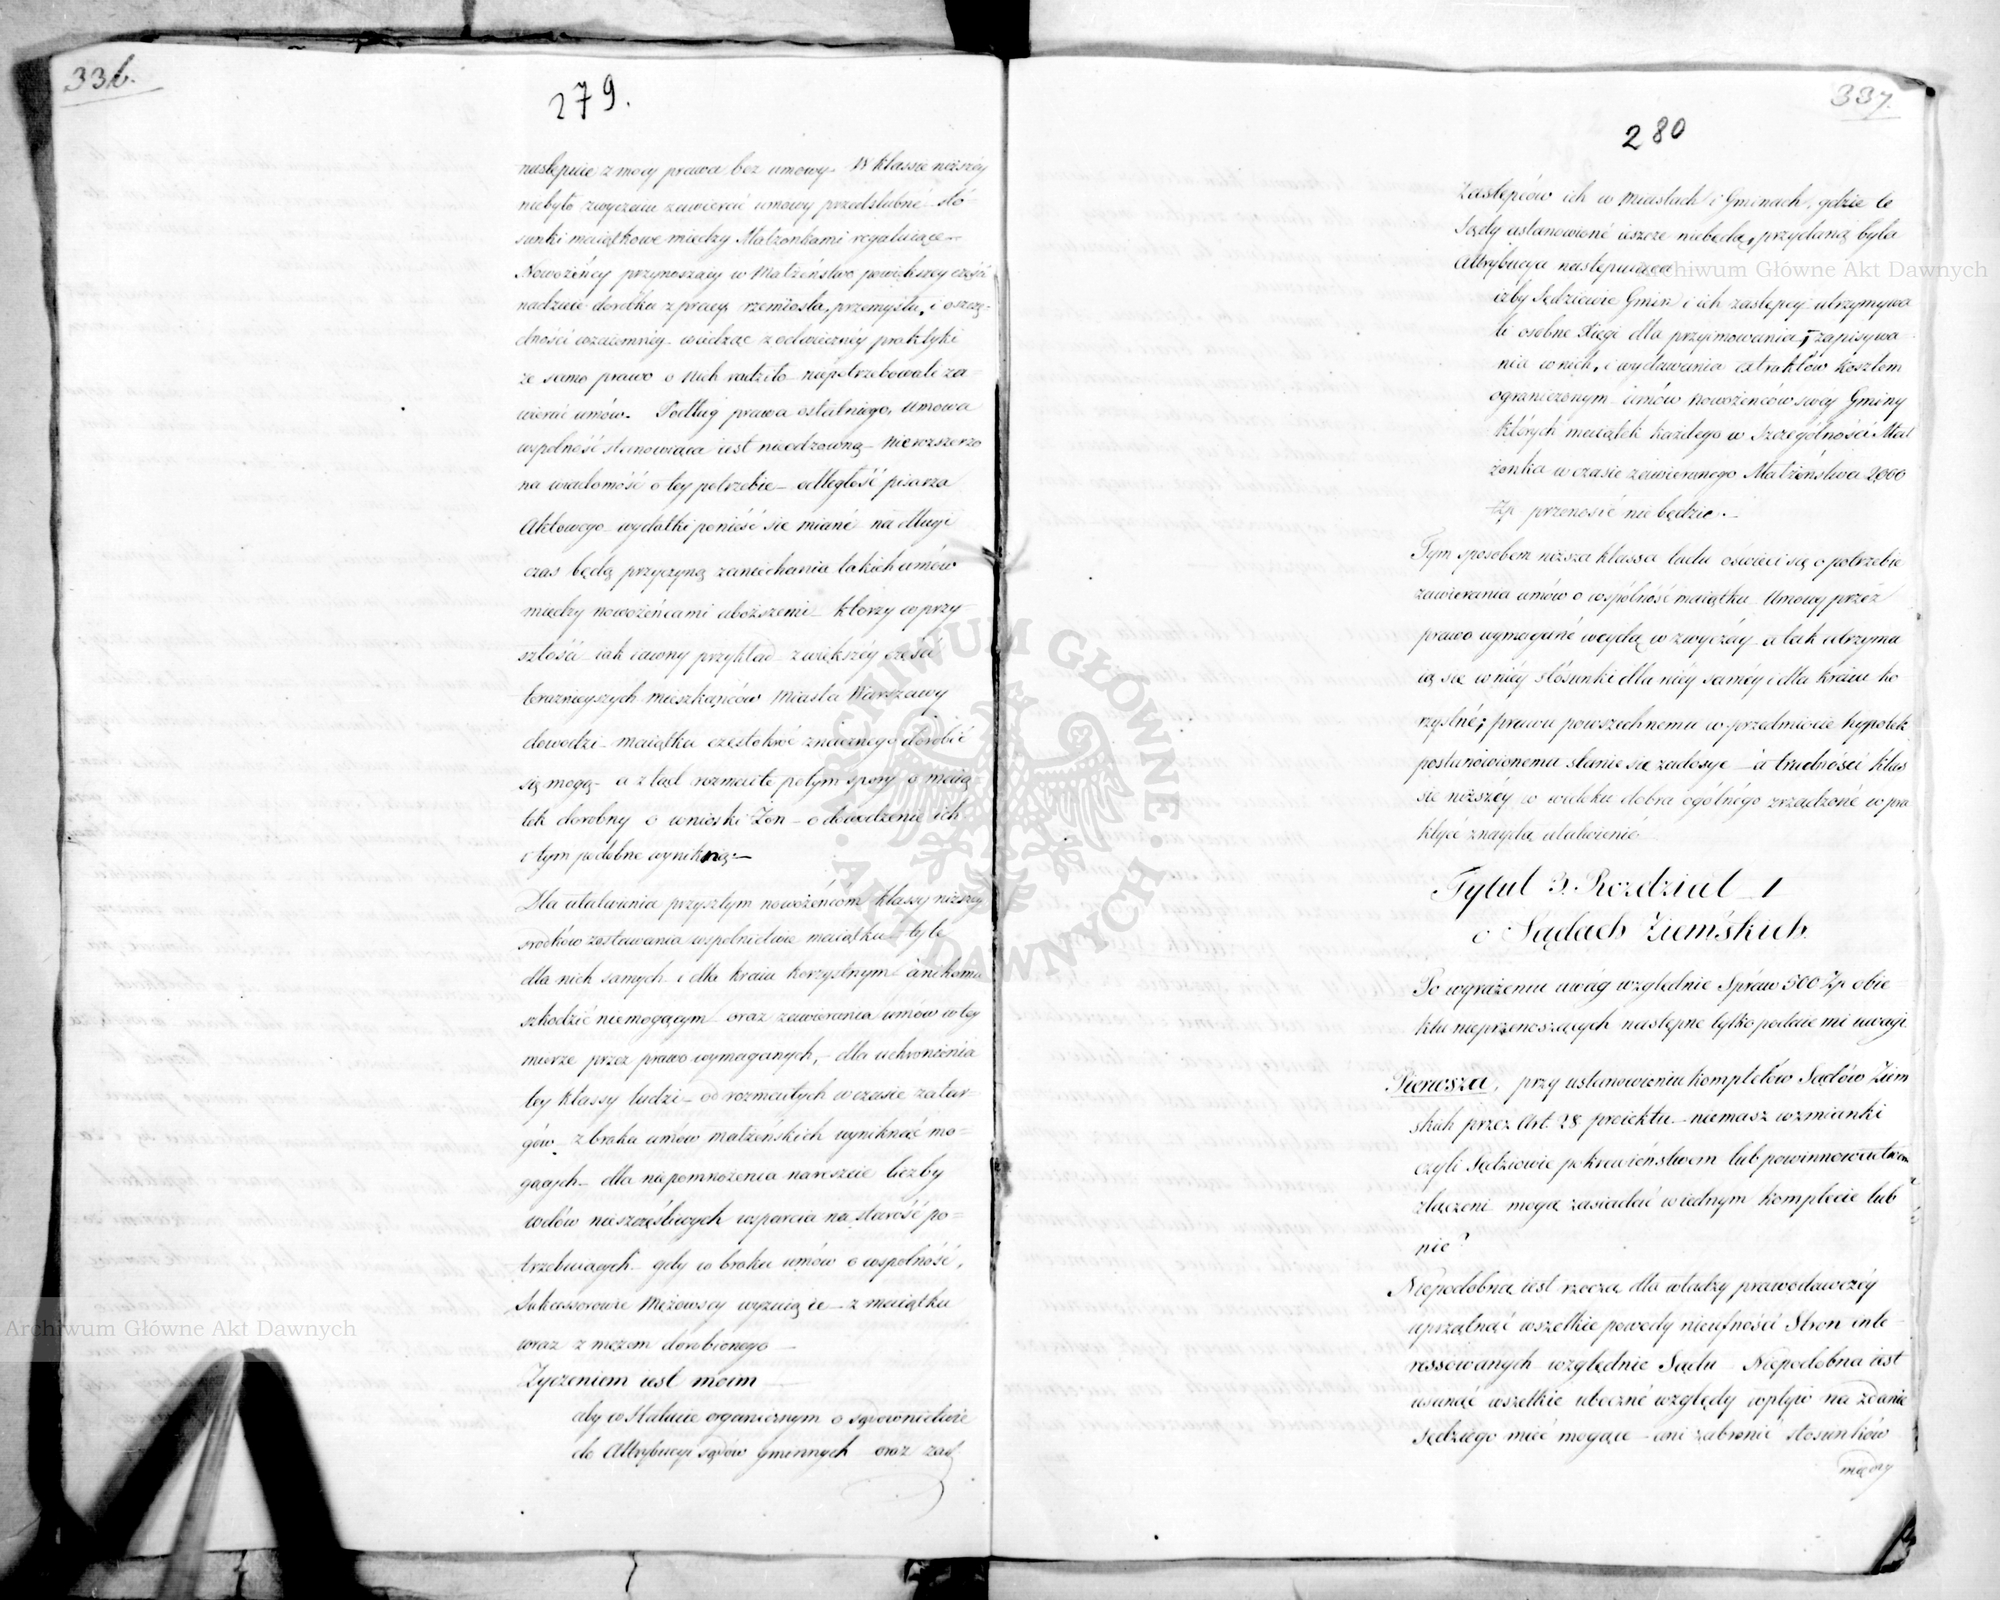 336.
279.
następnie z mocy prawa bez umowy. W klassie niższéy
niebyło zwyczaiu zawierać umowy przedślubné sto-
sunki maiątkowe między Małżonkami regulujące —
Nowożéńcy przynoszący w Małżeństwo powiększey części
nadzieie dorobku z pracy, rzemiosła, przemysłu, i oszczę-
dności wzaiemnéy widząc z odwiecznéy praktyki
że samo prawo o nich radziło niepotrzebowali za-
wierać umów. Podług prawa ostatniego, umowa
wspólność stanowiąca iest nieodzowną
na wiadomość o téy potrzebie — odległość pisarza
Aktowego wydatki ponieść się miané na długi
czas będą przyczyną zaniechania takich umów
między nowożéńcami uboższemi którzy w przy-
szłości iak iawny przykład z większéy części
teraznieyszych mieszkańców miasta Warszawy
dowodzi maiątku częstokroć znacznego dorobić
się mogą a ztąd rozmaite potym spory o maią
tek dorobny o wnioski Żon — o dowodzenie ich
i tym podobne wynikną —
Dla ułatwienia przyszłym nowożéńcom klassy niższéy
srodków zostawania wspólnictwie maiątku tyle
dla nich samych i dla kraiu korzystnym a nikomu
szkodzić niemogącym oraz zawierania umów w téy
mierze przez prawo wymaganych, — dla uchronienia
téy klassy ludzi — od rozmaitych w czasie zatar-
gów z braku umów małżeńskich wyniknąć mo-
gących — dla niepomnożenia nareszcie liczby
wdów nieszczęśliwych wsparcia na starość po-
trzebuiących gdy w braku umów o wspólność,
Sukcessorowie Mężowscy wyzuią ie — z maiątku
wraz z mężem dorobionego —
Życzeniem iest moim —
aby w Statucie organicznym o sądownictwie
do Attrybucyi sądów gminnych oraz zas
337.
280
Zastępców ich w Miastach i Gminach, gdzie te
Sądy ustanowioné ieszcze niebędą, przydaną była
Attrybucya następuiąca
iżby Sędziowie Gmin i ich zastępcy utrzymywa
li osobne Xięgi dla przyimowania, zapisywa-
nia w nich, i wydawania extraktów kosztem
ograniczonym umów Nowożeńców swéy Gminy
których maiątek każdego w Szczególności Mał
żonka w czasie zawieranego Małżéństwa 2,000
Złp przenosić nie będzie. —
Tym sposobem niższa klassa ludu oświeci się o potrzebie
zawierania umów o wspólność maiątku Umowy przéz
prawo wymagané weydą w zwyczay a tak utrzyma
ią się w niéy stósunki dla niéy saméy i dla kraiu ko
rzystné; prawu powszechnemu w przedmiocie hypotek
postanowionemu stanie się zadosyć — a trudności klas
sie niższéy w widoku dobra ogólnego zrządzoné w pra
ktyce znaydą ułatwienie
Tytuł 3. Rozdział 1
o Sądach Ziemskich.
Po wyrażeniu uwag względnie Spraw 500 Złp obie
ktu nieprzenoszących następne tylko podaie mi uwagi
Pierwsza, przy ustanowieniu kompletów Sądów Ziem
skich przez Art. 28 proiektu — niemasz wzmianki
czyli Sędziowie pokrewieństwem lub powinnowactwem
złączeni mogą zasiadać w iednym komplecie lub
nie?
Niepodobną iest rzeczą dla władzy prawodawczéy
uprzątnąć wszelkie powody nieufności Stron inte-
ressowanych względnie Sądu Niepodobna iest
usunąć wszelkie uboczné względy wpływ na zdanie
Sędziego mieć mogące — ani zabronić stosunków
między
Archiwum Główne Akt Dawnych
Archiwum Główne Akt Dawnych
ARCHIWUM GŁÓWNE · AKT DAWNYCH ·